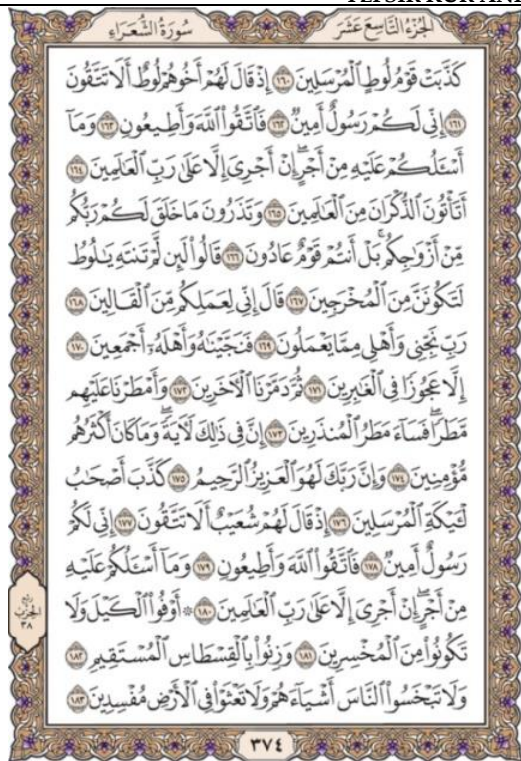 TEFSIR KUR'ANI
الجُزْءُ التَّاسِعَ عَشَرَ
سُورَةُ الشُّعَرَاءِ
كَذَّبَتْ قَوْمُ لُوطٍ ٱلْمُرْسَلِينَ ١٦٠ إِذْ قَالَ لَهُمْ أَخُوهُمْ لُوطٌ أَلَا تَتَّقُونَ
١٦١ إِنِّى لَكُمْ رَسُولٌ أَمِينٌ ١٦٢ فَٱتَّقُوا۟ ٱللَّهَ وَأَطِيعُونِ ١٦٣ وَمَآ
أَسْـَٔلُكُمْ عَلَيْهِ مِنْ أَجْرٍ ۖ إِنْ أَجْرِىَ إِلَّا عَلَىٰ رَبِّ ٱلْعَـٰلَمِينَ ١٦٤
أَتَأْتُونَ ٱلذُّكْرَانَ مِنَ ٱلْعَـٰلَمِينَ ١٦٥ وَتَذَرُونَ مَا خَلَقَ لَكُمْ رَبُّكُم
مِّنْ أَزْوَٰجِكُم ۚ بَلْ أَنتُمْ قَوْمٌ عَادُونَ ١٦٦ قَالُوا۟ لَئِن لَّمْ تَنتَهِ يَـٰلُوطُ
لَتَكُونَنَّ مِنَ ٱلْمُخْرَجِينَ ١٦٧ قَالَ إِنِّى لِعَمَلِكُم مِّنَ ٱلْقَالِينَ ١٦٨
رَبِّ نَجِّنِى وَأَهْلِى مِمَّا يَعْمَلُونَ ١٦٩ فَنَجَّيْنَـٰهُ وَأَهْلَهُۥٓ أَجْمَعِينَ ١٧٠
إِلَّا عَجُوزًا فِى ٱلْغَـٰبِرِينَ ١٧١ ثُمَّ دَمَّرْنَا ٱلْـَٔاخَرِينَ ١٧٢ وَأَمْطَرْنَا عَلَيْهِم
مَّطَرًا ۖ فَسَآءَ مَطَرُ ٱلْمُنذَرِينَ ١٧٣ إِنَّ فِى ذَٰلِكَ لَـَٔايَةً ۖ وَمَا كَانَ أَكْثَرُهُم
مُّؤْمِنِينَ ١٧٤ وَإِنَّ رَبَّكَ لَهُوَ ٱلْعَزِيزُ ٱلرَّحِيمُ ١٧٥ كَذَّبَ أَصْحَـٰبُ
لْـَٔيْكَةِ ٱلْمُرْسَلِينَ ١٧٦ إِذْ قَالَ لَهُمْ شُعَيْبٌ أَلَا تَتَّقُونَ ١٧٧ إِنِّى لَكُمْ
رَسُولٌ أَمِينٌ ١٧٨ فَٱتَّقُوا۟ ٱللَّهَ وَأَطِيعُونِ ١٧٩ وَمَآ أَسْـَٔلُكُمْ عَلَيْهِ
مِنْ أَجْرٍ ۖ إِنْ أَجْرِىَ إِلَّا عَلَىٰ رَبِّ ٱلْعَـٰلَمِينَ ١٨٠ ۞ أَوْفُوا۟ ٱلْكَيْلَ وَلَا
تَكُونُوا۟ مِنَ ٱلْمُخْسِرِينَ ١٨١ وَزِنُوا۟ بِٱلْقِسْطَاسِ ٱلْمُسْتَقِيمِ ١٨٢
وَلَا تَبْخَسُوا۟ ٱلنَّاسَ أَشْيَآءَهُمْ وَلَا تَعْثَوْا۟ فِى ٱلْأَرْضِ مُفْسِدِينَ ١٨٣
ربع
الحزب
٣٨
٣٧٤